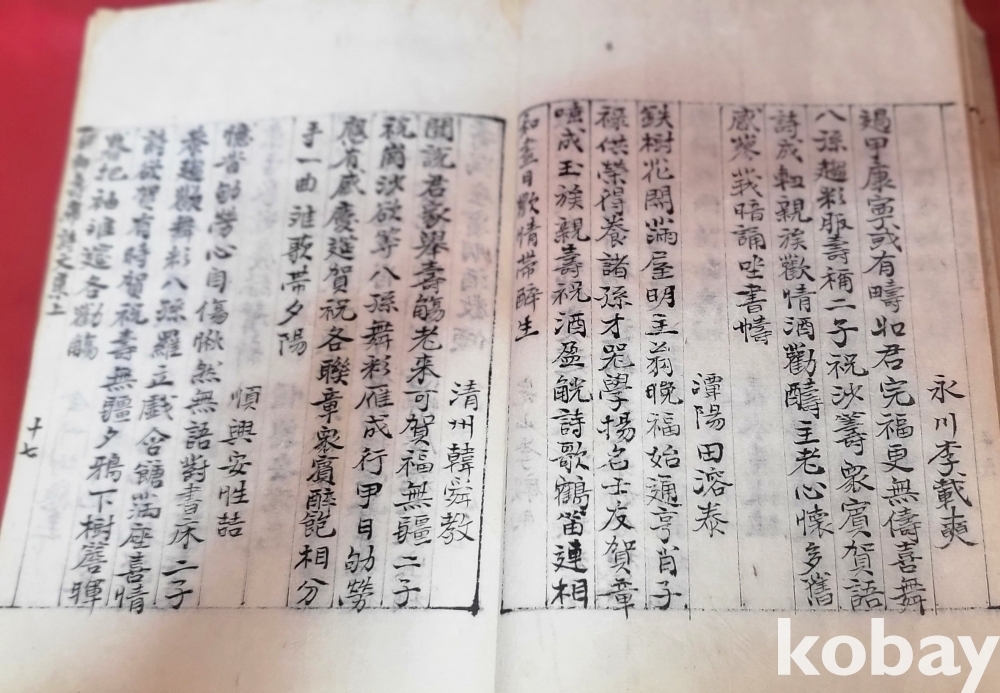 永川李載奭
過甲康寅或有疇如君完福更無儔喜舞
八孫趨彩服壽補二子祝沙籌衆賓賀語
詩成軸親族歡情酒勸醻主老心懷多舊
感寒戎暗誦坐書幬
潭陽田溶泰
鉄樹花開滿屋明主翁晚福始通亨肖子
祿供榮得養諸孫才器學揚名士友賀章
嘻成玉族親壽祝酒盈觥詩歌鶴笛連相
和盡日歡情帶醉生
清州韓舜教
聞說君家舉壽觴老來可賀福無疆二子
祝崗沙欲等八孫舞彩雁成行甲日劬勞
應有感慶筵賀祝各聯章衆賓醉飽相分
手一曲誰歌帶夕陽
順興安性喆
憶昔劬勞心自傷愀然無語對書床二子
養趨歡舞彩八孫羅立戲含飴滿座喜情
詩欲習有時賀祝壽無疆夕鴉下樹簷暉
把袖誰違各勸觴
文集上
十七
kobay